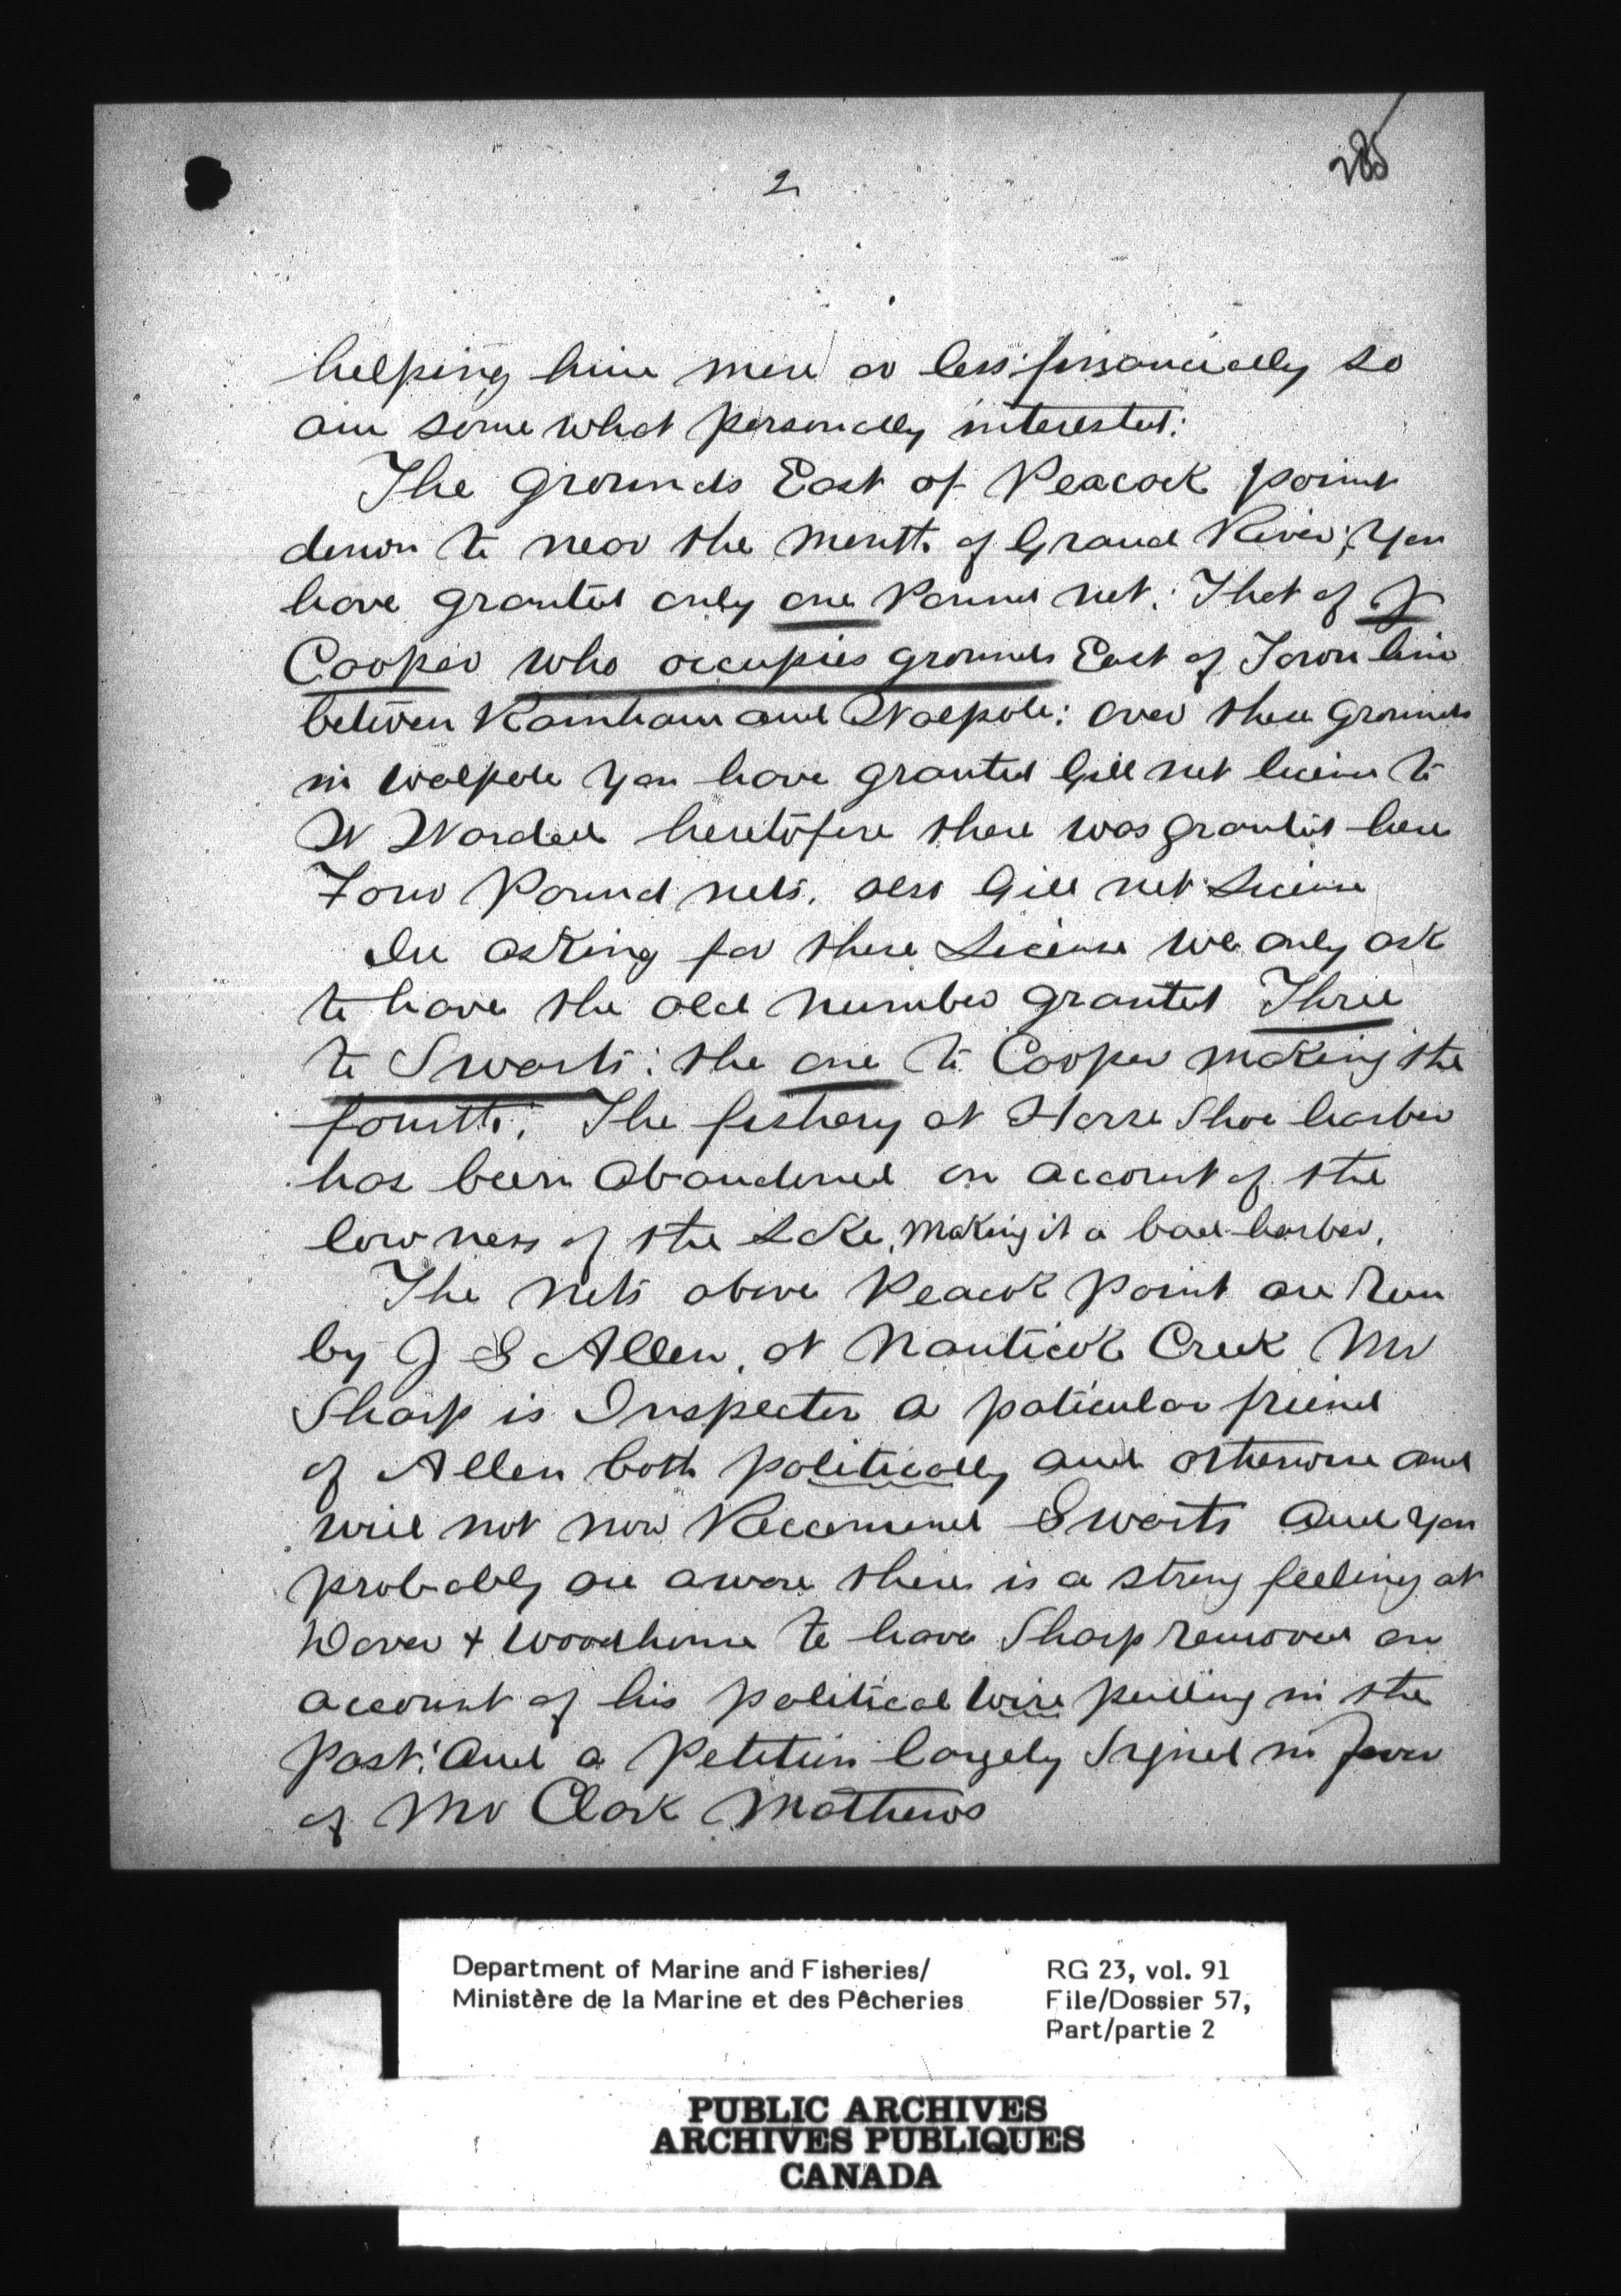 2
285
helping him more or less financially so
am some what personally interested:
The grounds East of Peacock point
down to near the mouth of Grand River; you
have granted only one Pound net: That of J
Cooper who occupies grounds East of Town line
between Rainham and Walpole: over these grounds
in Walpole you have granted Gill net license to
W Wardell heretofore there was granted here
Four Pound nets. also Gill net License
In asking for these License we only ask
to have the old number granted Three
to Swarts: the one to Cooper making the
fourth. The fishery at Horse Shoe harbor
has been abandoned on account of the
lowness of the Lake, making it a bad harbor.
The nets above Peacok Point are run
by J S Allen, at Nanticok Creek Mr
Sharp is Inspector a paticular friend
of Allen both politically and otherwise and
will not now Reccomend Swarts and you
probably are aware there is a strong feeling at
Dover + Woodhouse to have Sharp removed on
account of his political wire pulling in the
past: and a Petition largely Signed in favor
of Mr Clark Mathews
Department of Marine and Fisheries/
Ministère de la Marine et des Pêcheries
RG 23, vol. 91
File/Dossier 57,
Part/partie 2
PUBLIC ARCHIVES
ARCHIVES PUBLIQUES
CANADA